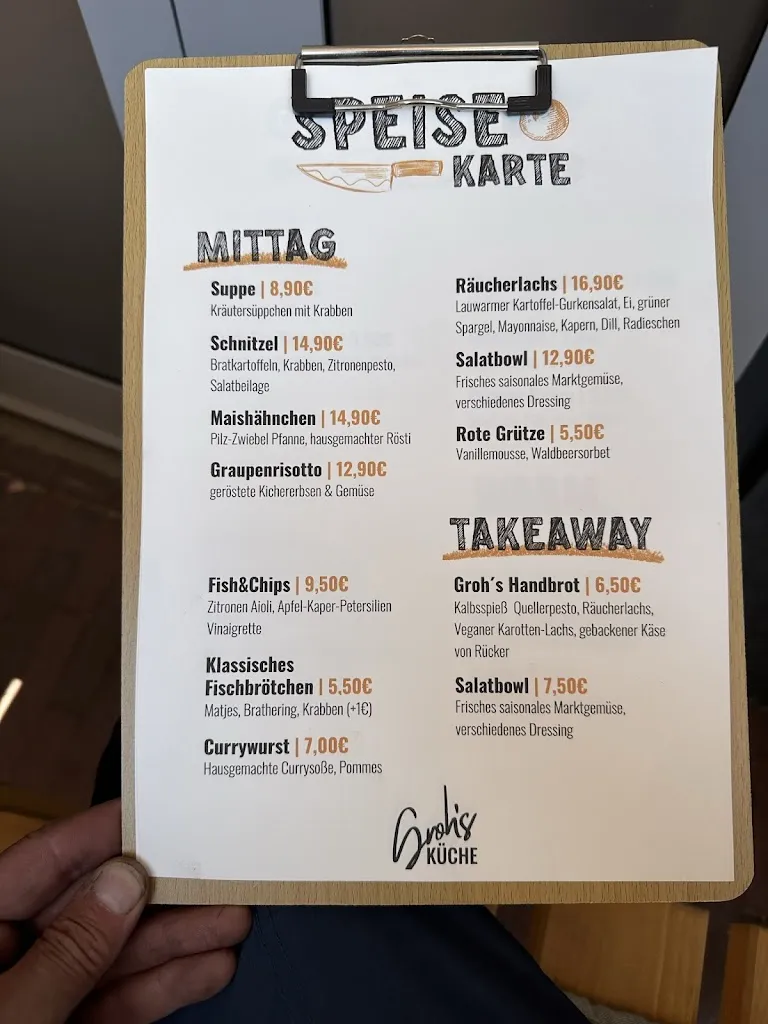 SPEISE
KARTE
MITTAG
Suppe | 8,90€
Kräutersüppchen mit Krabben
Schnitzel | 14,90€
Bratkartoffeln, Krabben, Zitronenpesto,
Salatbeilage
Maishähnchen | 14,90€
Pilz-Zwiebel Pfanne, hausgemachter Rösti
Graupenrisotto | 12,90€
geröstete Kichererbsen & Gemüse
Räucherlachs | 16,90€
Lauwarmer Kartoffel-Gurkensalat, Ei, grüner
Spargel, Mayonnaise, Kapern, Dill, Radieschen
Salatbowl | 12,90€
Frisches saisonales Marktgemüse,
verschiedenes Dressing
Rote Grütze | 5,50€
Vanillemousse, Waldbeersorbet
TAKEAWAY
Fish&Chips | 9,50€
Zitronen Aioli, Apfel-Kaper-Petersilien
Vinaigrette
Klassisches
Fischbrötchen | 5,50€
Matjes, Brathering, Krabben (+1€)
Currywurst | 7,00€
Hausgemachte Currysoße, Pommes
Groh´s Handbrot | 6,50€
Kalbsspieß Quellerpesto, Räucherlachs,
Veganer Karotten-Lachs, gebackener Käse
von Rücker
Salatbowl | 7,50€
Frisches saisonales Marktgemüse,
verschiedenes Dressing
Groh's
KÜCHE